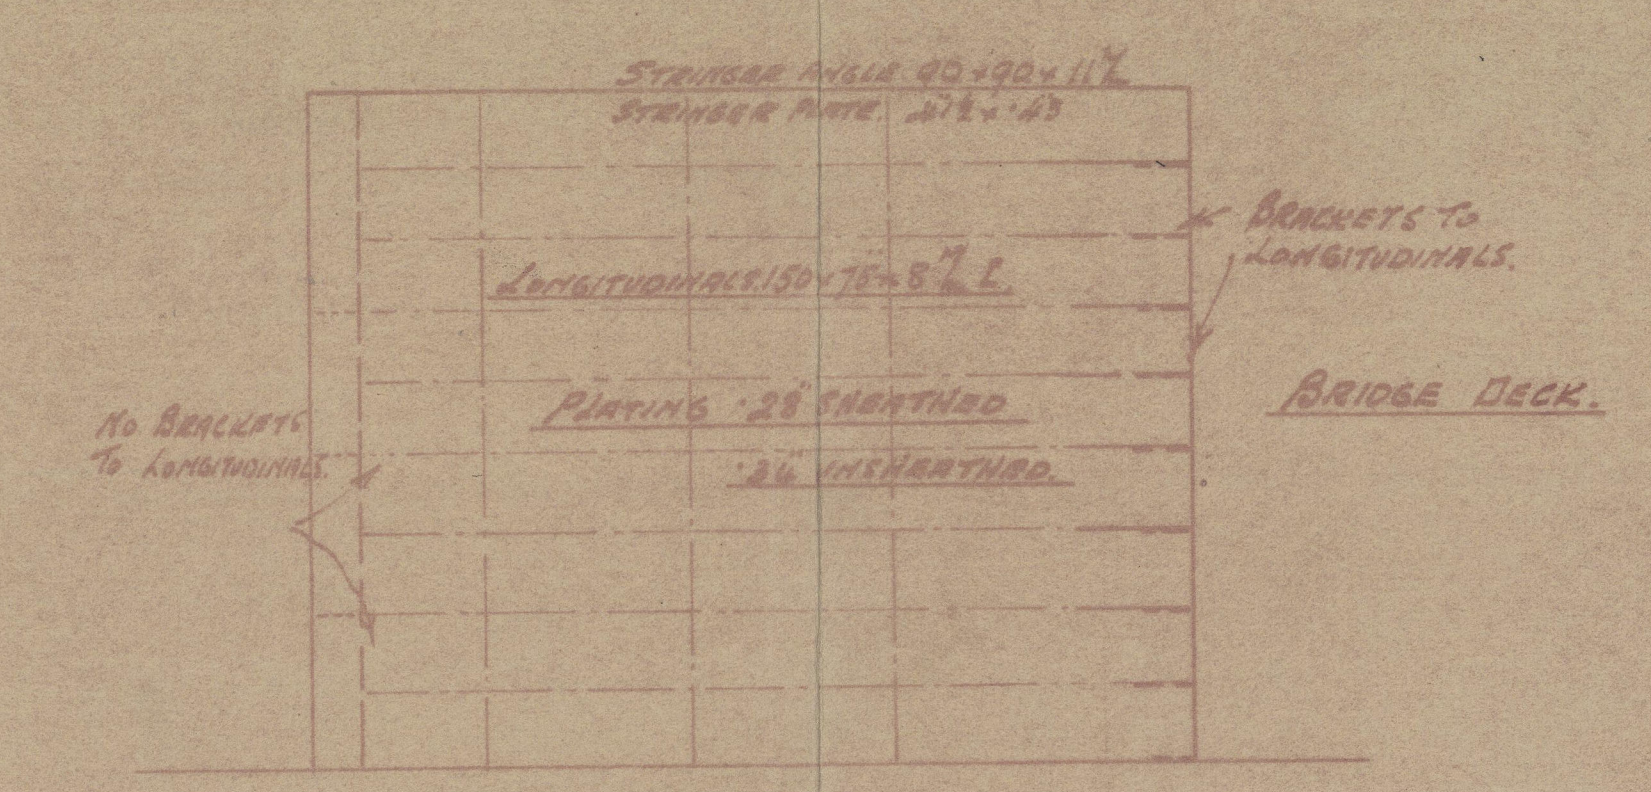 STRINGER ANGLE 90 × 90 × 11 ᵐ/ₘ
STRINGER PLATE.
BRACKETS TO
LONGITUDINALS.
LONGITUDINALS. 150 × 75 × 8 ᵐ/ₘ
PLATING ·28" SHEATHED
BRIDGE DECK.
NO BRACKETS
TO LONGITUDINALS.
UNSHEATHED.